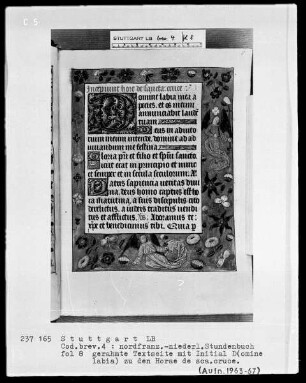 STUTTGART LB brev 4
Incipiunt hore de sancta cruce
Domine labia mea a
peries. et os meum
annunciabit laudem
tuam
Deus in adiuto
rium meum intende. domine ad ad
iuuandum me festina
Gloria pri et filio et spui sancto
sicut erat in principio et nunc
et semper et in secula seculorum.
Patris sapiencia ueritas diui
na. deus homo captus est ho
ra matutina. a suis discipulis cito
derelictus. a iudeis traditus uendi
tus et afflictus. Adoramus te
xpe et benedicimus tibi. Quia p
237 165 Stuttgart LB
Cod.brev.4 : nordfranz.-niederl.Stundenbuch
fol 8 gerahmte Textseite mit Initial D(omine
labia) zu den Horae de sca.cruce.
(Aufn.1963-67)